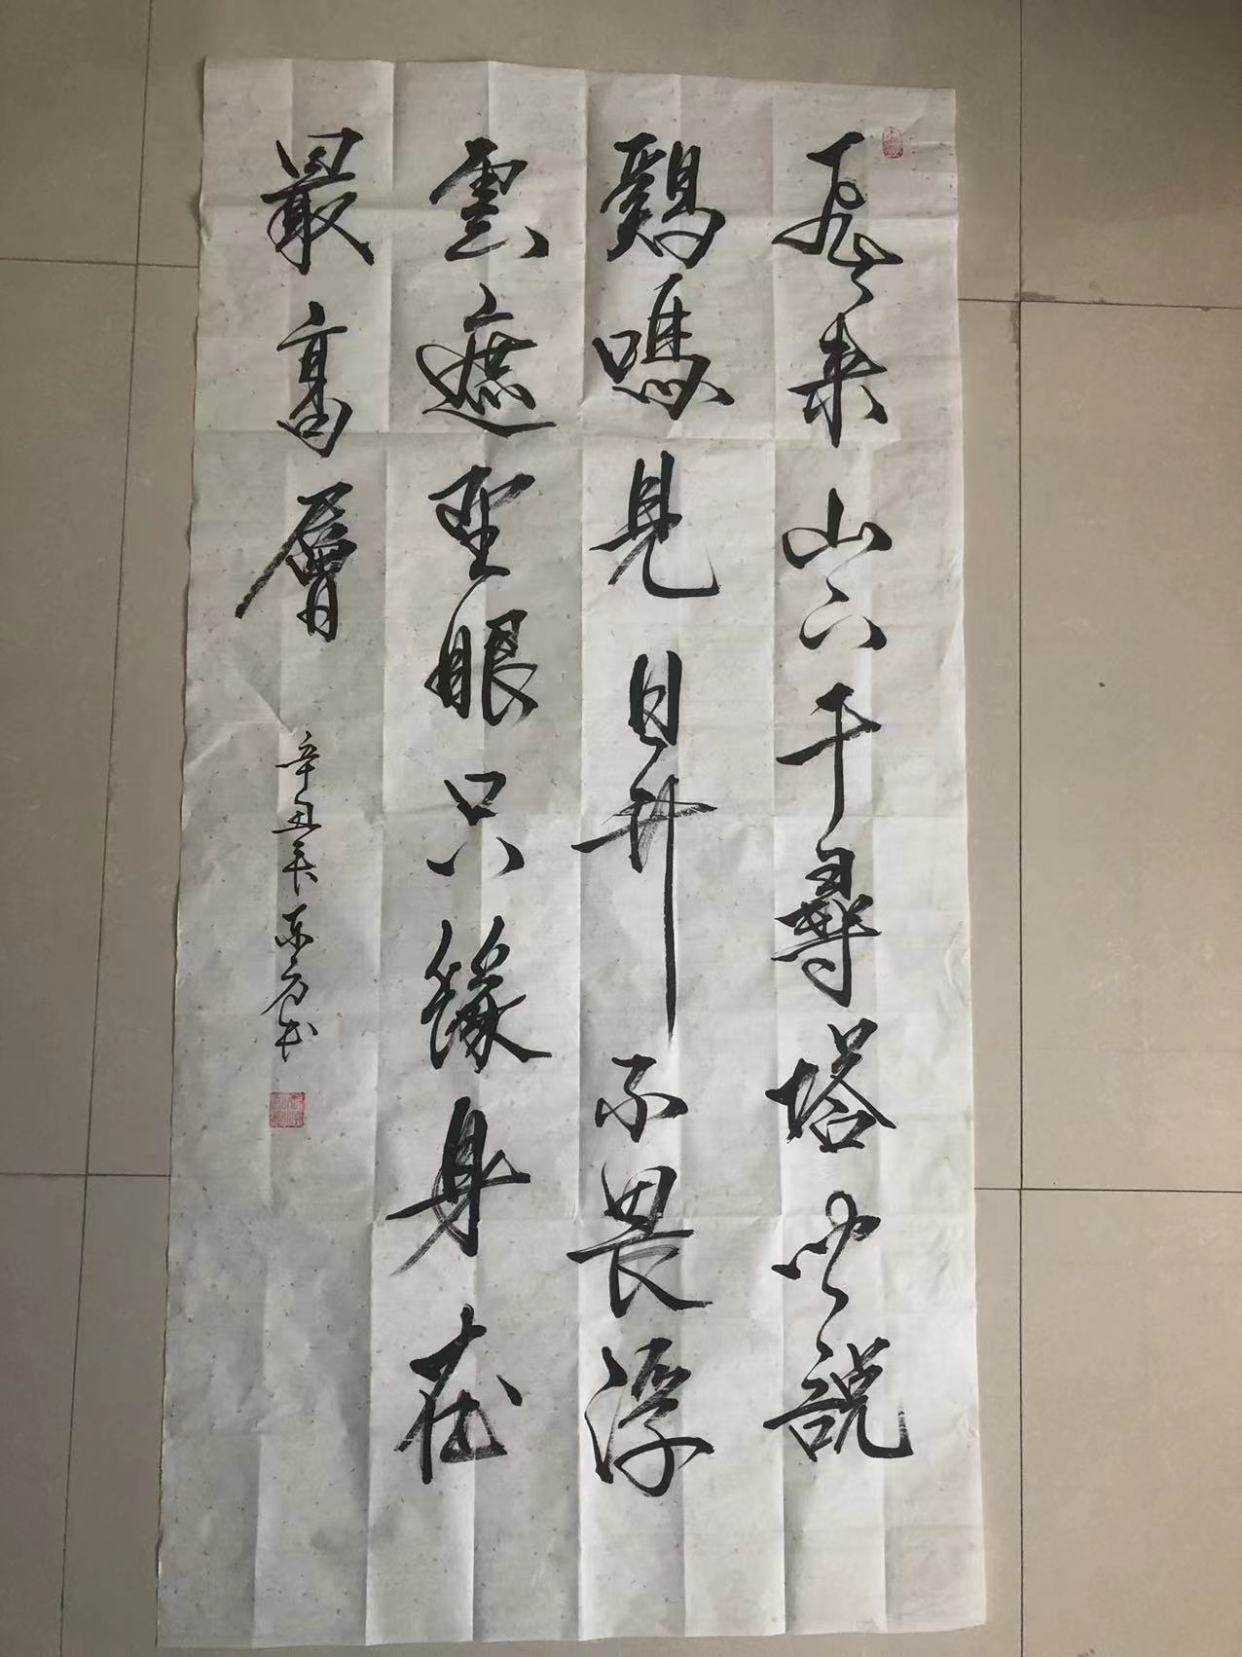 飛来山上千尋塔聞說
鷄鳴見日升不畏浮
雲遮望眼只緣身在
最高層
辛丑年东方书